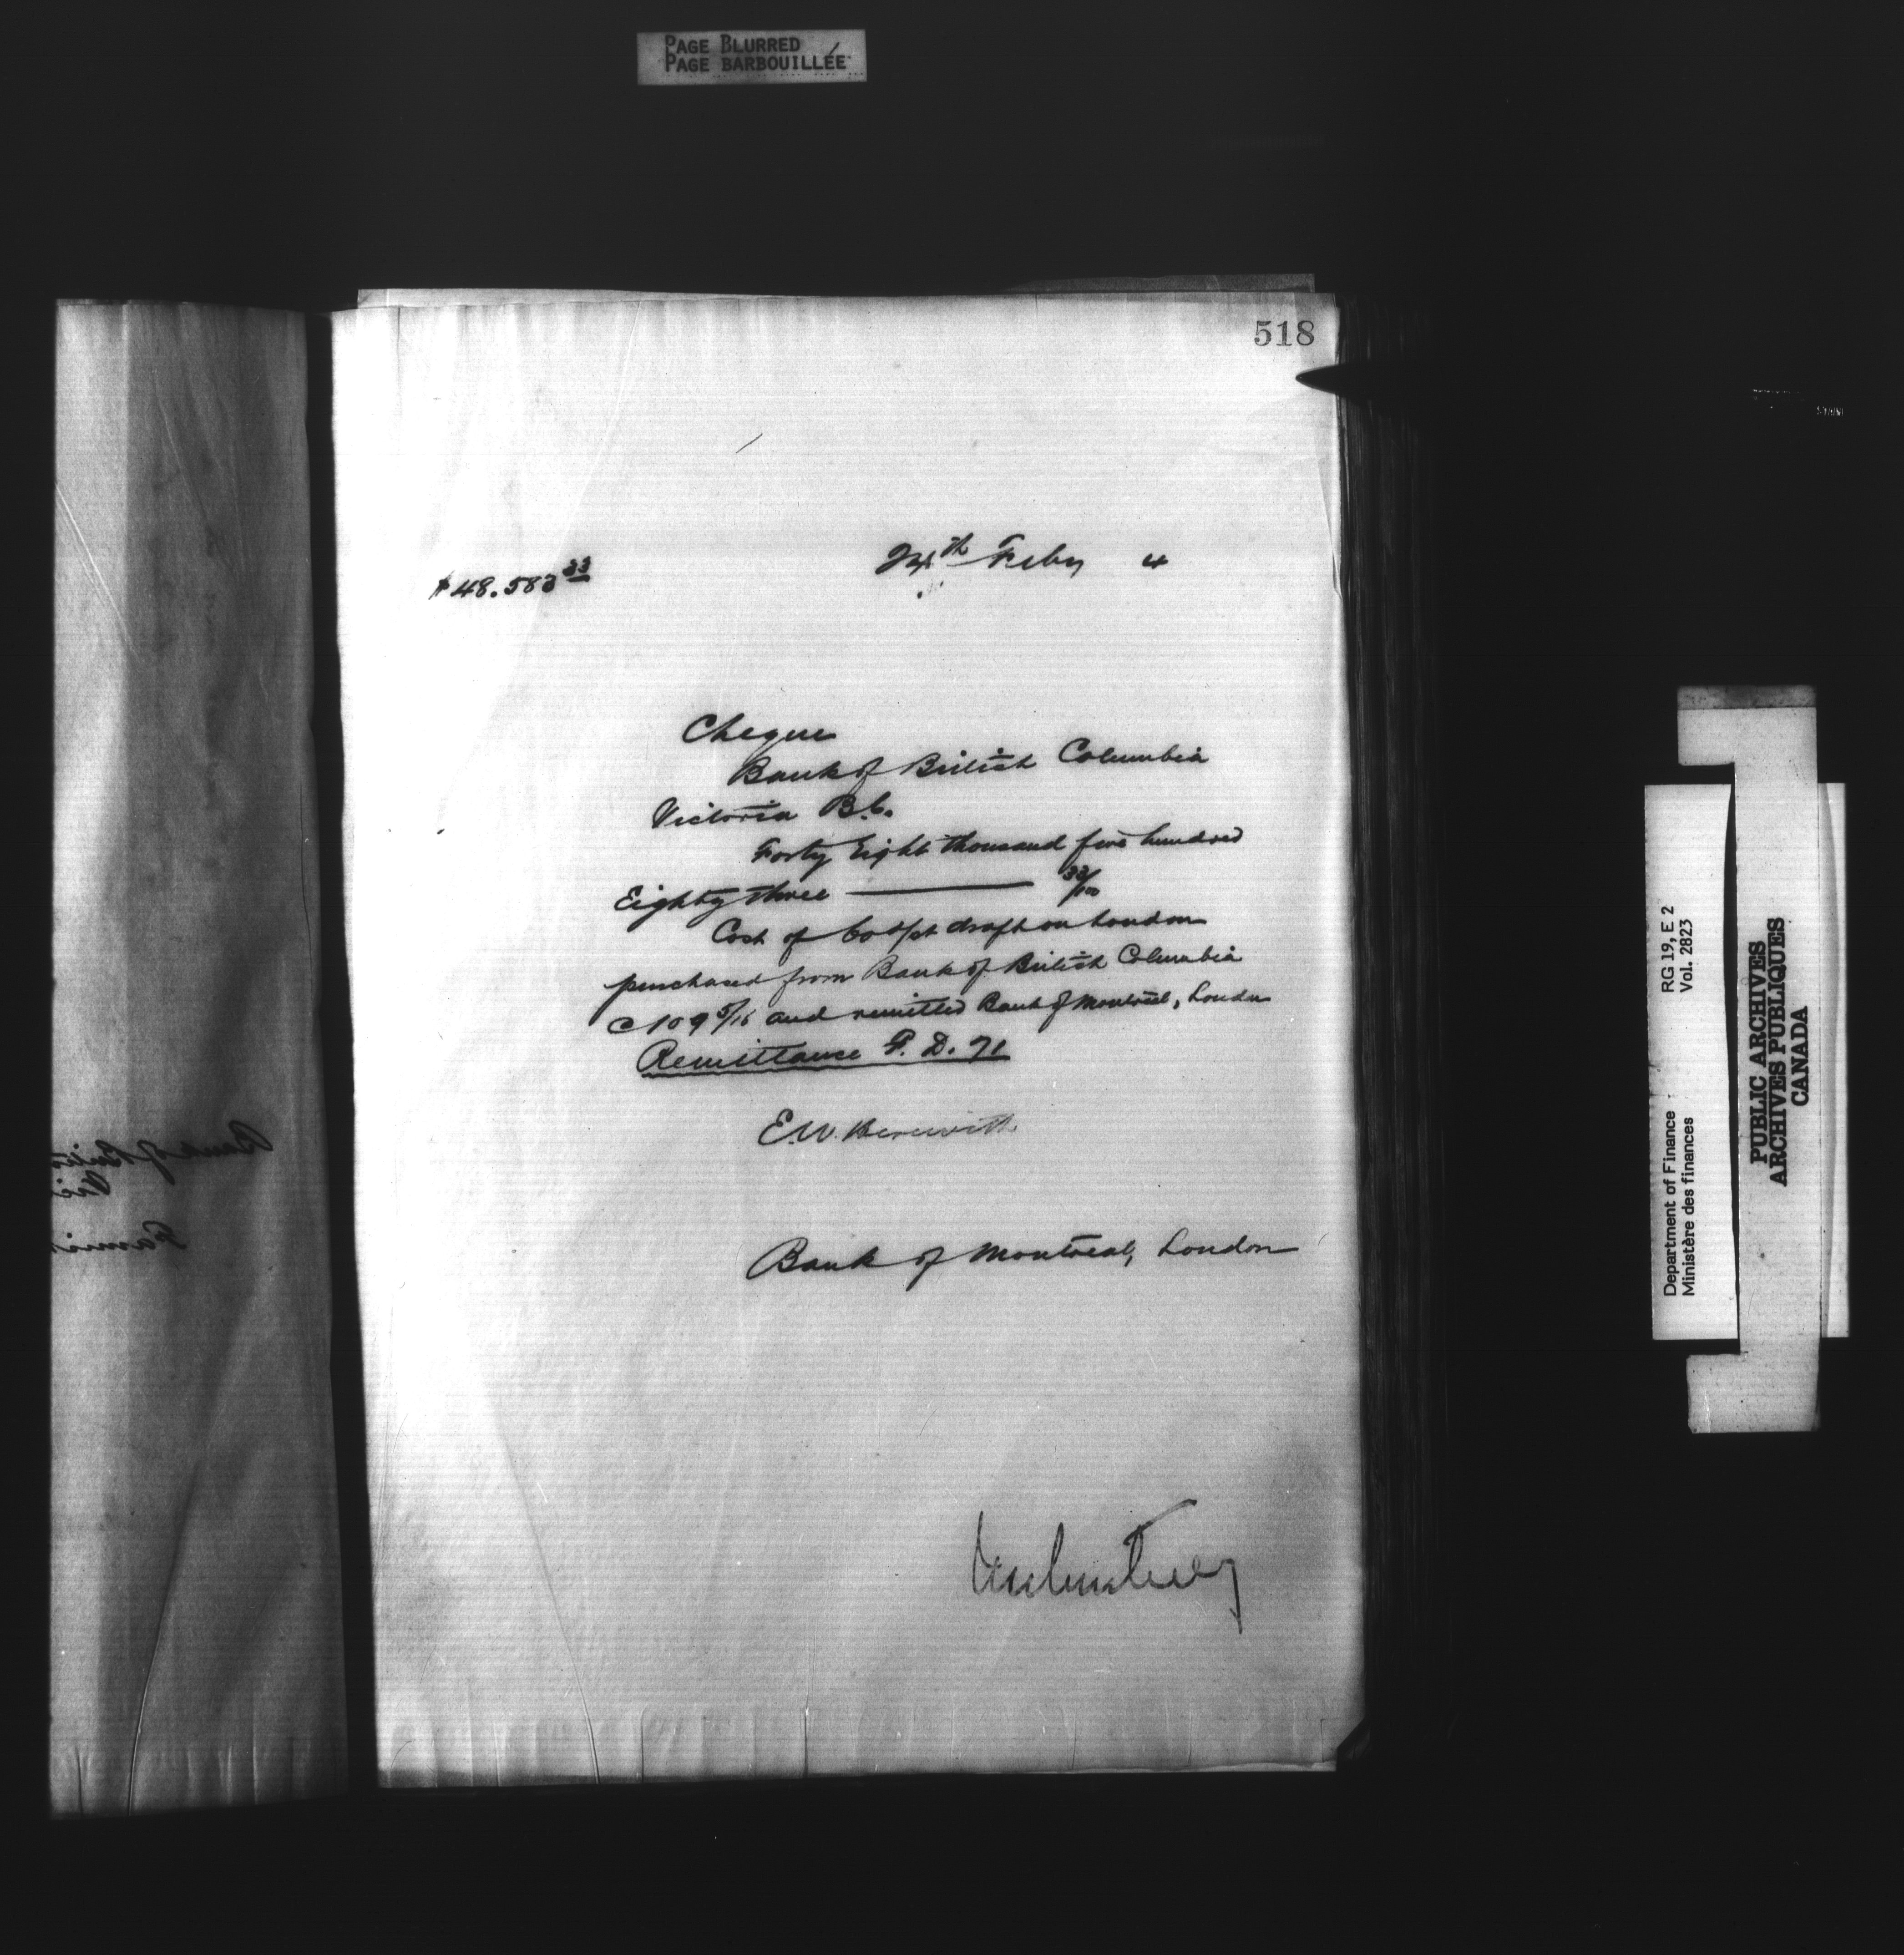 PAGE BLURRED
PAGE BARBOUILLÉE
518
$48.583 33
24th Feby 4
Cheque
Bank of British Columbia
Victoria B.C.
Forty Eight thousand five hundred
Eighty three 33/100
Cost of 60 d/st draft on London
purchased from Bank of British Columbia
@ 109 5/16 and remitted Bank of Montreal, London
Remittance F. D. 71
E.W.
Bank of Montreal, London
RG 19, E 2
Vol. 2823
Department of Finance
Ministère des finances
PUBLIC ARCHIVES
ARCHIVES PUBLIQUES
CANADA